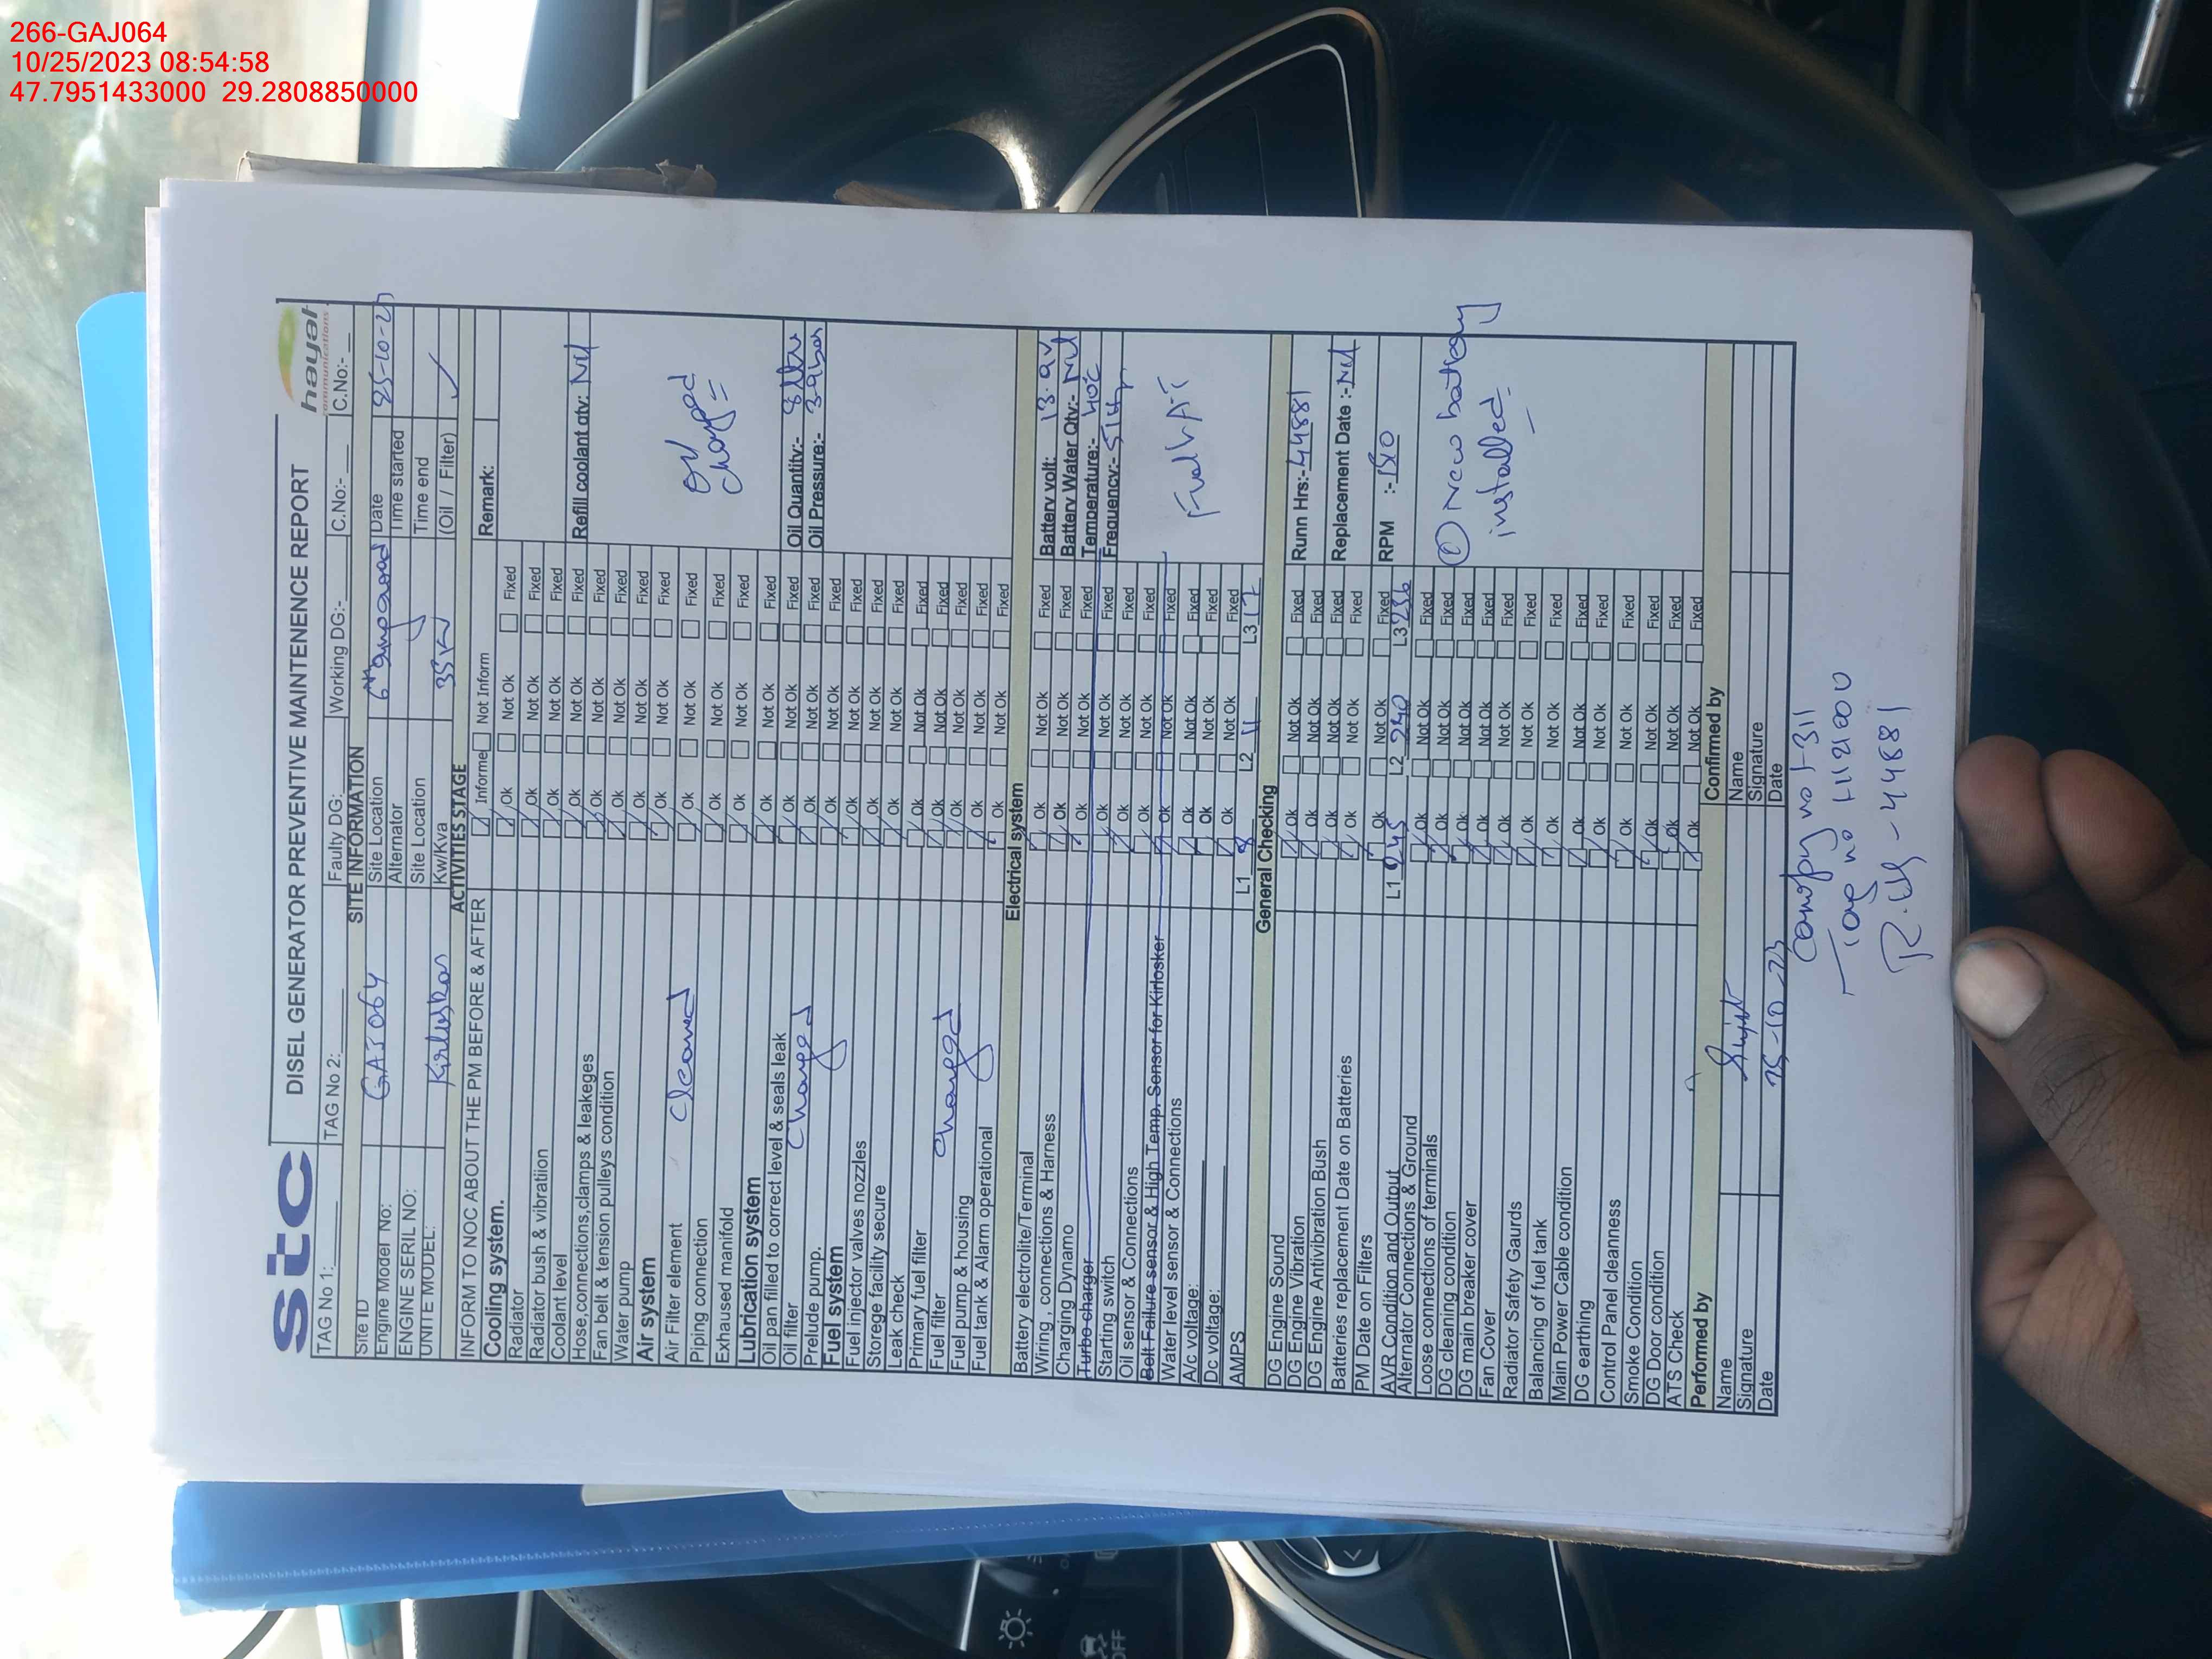 266-GAJ064
10/25/2023 08:54:58
47.7951433000 29.2808850000
stc
DISEL GENERATOR PREVENTIVE MAINTENENCE REPORT
hayat
communications
TAG No 1: TAG No 2: Faulty DG: Working DG:- C.No:- C.No:-
SITE INFORMATION
Site ID GAJ064 Site Location 6th Date 25-10-23
Engine Model No: Alternator Time started
ENGINE SERIL NO: Site Location Time end
UNITE MODEL: Kirloskar Kw/Kva 35 (Oil / Filter) ✓
ACTIVITIES STAGE
INFORM TO NOC ABOUT THE PM BEFORE & AFTER Informe Not Inform Remark:
Cooling system.
Radiator Ok Not Ok Fixed
Radiator bush & vibratiion Ok Not Ok Fixed
Coolant level Ok Not Ok Fixed
Hose,connections,clamps & leakeges Ok Not Ok Fixed Refill coolant qty: Nil
Fan belt & tension pulleys condition Ok Not Ok Fixed
Water pump Ok Not Ok Fixed
Air system Ok Not Ok Fixed
Air Filter element Cleaned Ok Not Ok Fixed
Piping connection Ok Not Ok Fixed Oil changed
Exhaused manifold Ok Not Ok Fixed
Lubrication system Ok Not Ok Fixed
Oil pan filled to correct level & seals leak Ok Not Ok Fixed
Oil filter Changed Ok Not Ok Fixed Oil Quantity:- 8 ltrs
Prelude pump. Ok Not Ok Fixed Oil Pressure:- 3.9bar
Fuel system Ok Not Ok Fixed
Fuel injector valves nozzles Ok Not Ok Fixed
Storege facility secure Ok Not Ok Fixed
Leak check Ok Not Ok Fixed
Primary fuel filter Ok Not Ok Fixed
Fuel filter changed Ok Not Ok Fixed
Fuel pump & housing Ok Not Ok Fixed
Fuel tank & Alarm operational Ok Not Ok Fixed
Electrical system
Battery electrolite/Terminal Ok Not Ok Fixed Battery volt: 13.9v
Wiring , connections & Harness Ok Not Ok Fixed Battery Water Qty:- Nil
Charging Dynamo Ok Not Ok Fixed Temperature:- 40°c
Turbo charger Ok Not Ok Fixed Frequency:- 51Hz
Starting switch Ok Not Ok Fixed
Oil sensor & Connections Ok Not Ok Fixed
Belt Failure sensor & High Temp. Sensor for Kirlosker Ok Not Ok Fixed
Water level sensor & Connections Ok Not Ok Fixed Fuel
A/c voltage: Ok Not Ok Fixed
Dc voltage: Ok Not Ok Fixed
AMPS L1 8 L2 11 L3 17
General Checking
DG Engine Sound Ok Not Ok Fixed Runn Hrs:- 44881
DG Engine Vibration Ok Not Ok Fixed
DG Engine Antivibration Bush Ok Not Ok Fixed
Batteries replacement Date on Batteries Ok Not Ok Fixed Replacement Date :- Nil
PM Date on Filters Ok Not Ok Fixed
AVR Condition and Output L1 245 L2 240 L3 236 RPM :-
Alternator Connections & Ground Ok Not Ok Fixed
Loose connections of terminals Ok Not Ok Fixed
DG cleaning condition Ok Not Ok Fixed ① New battery
DG main breaker cover Ok Not Ok Fixed installed
Fan Cover Ok Not Ok Fixed
Radiator Safety Gaurds Ok Not Ok Fixed
Balancing of fuel tank Ok Not Ok Fixed
Main Power Cable condition Ok Not Ok Fixed
DG earthing Ok Not Ok Fixed
Control Panel cleanness Ok Not Ok Fixed
Smoke Condition Ok Not Ok Fixed
DG Door condition Ok Not Ok Fixed
ATS Check Ok Not Ok Fixed
Performed by Confirmed by
Name Name
Signature Signature
Date 25-10-23 Date
Canopy no F-311
Tag no
R.H - 44881